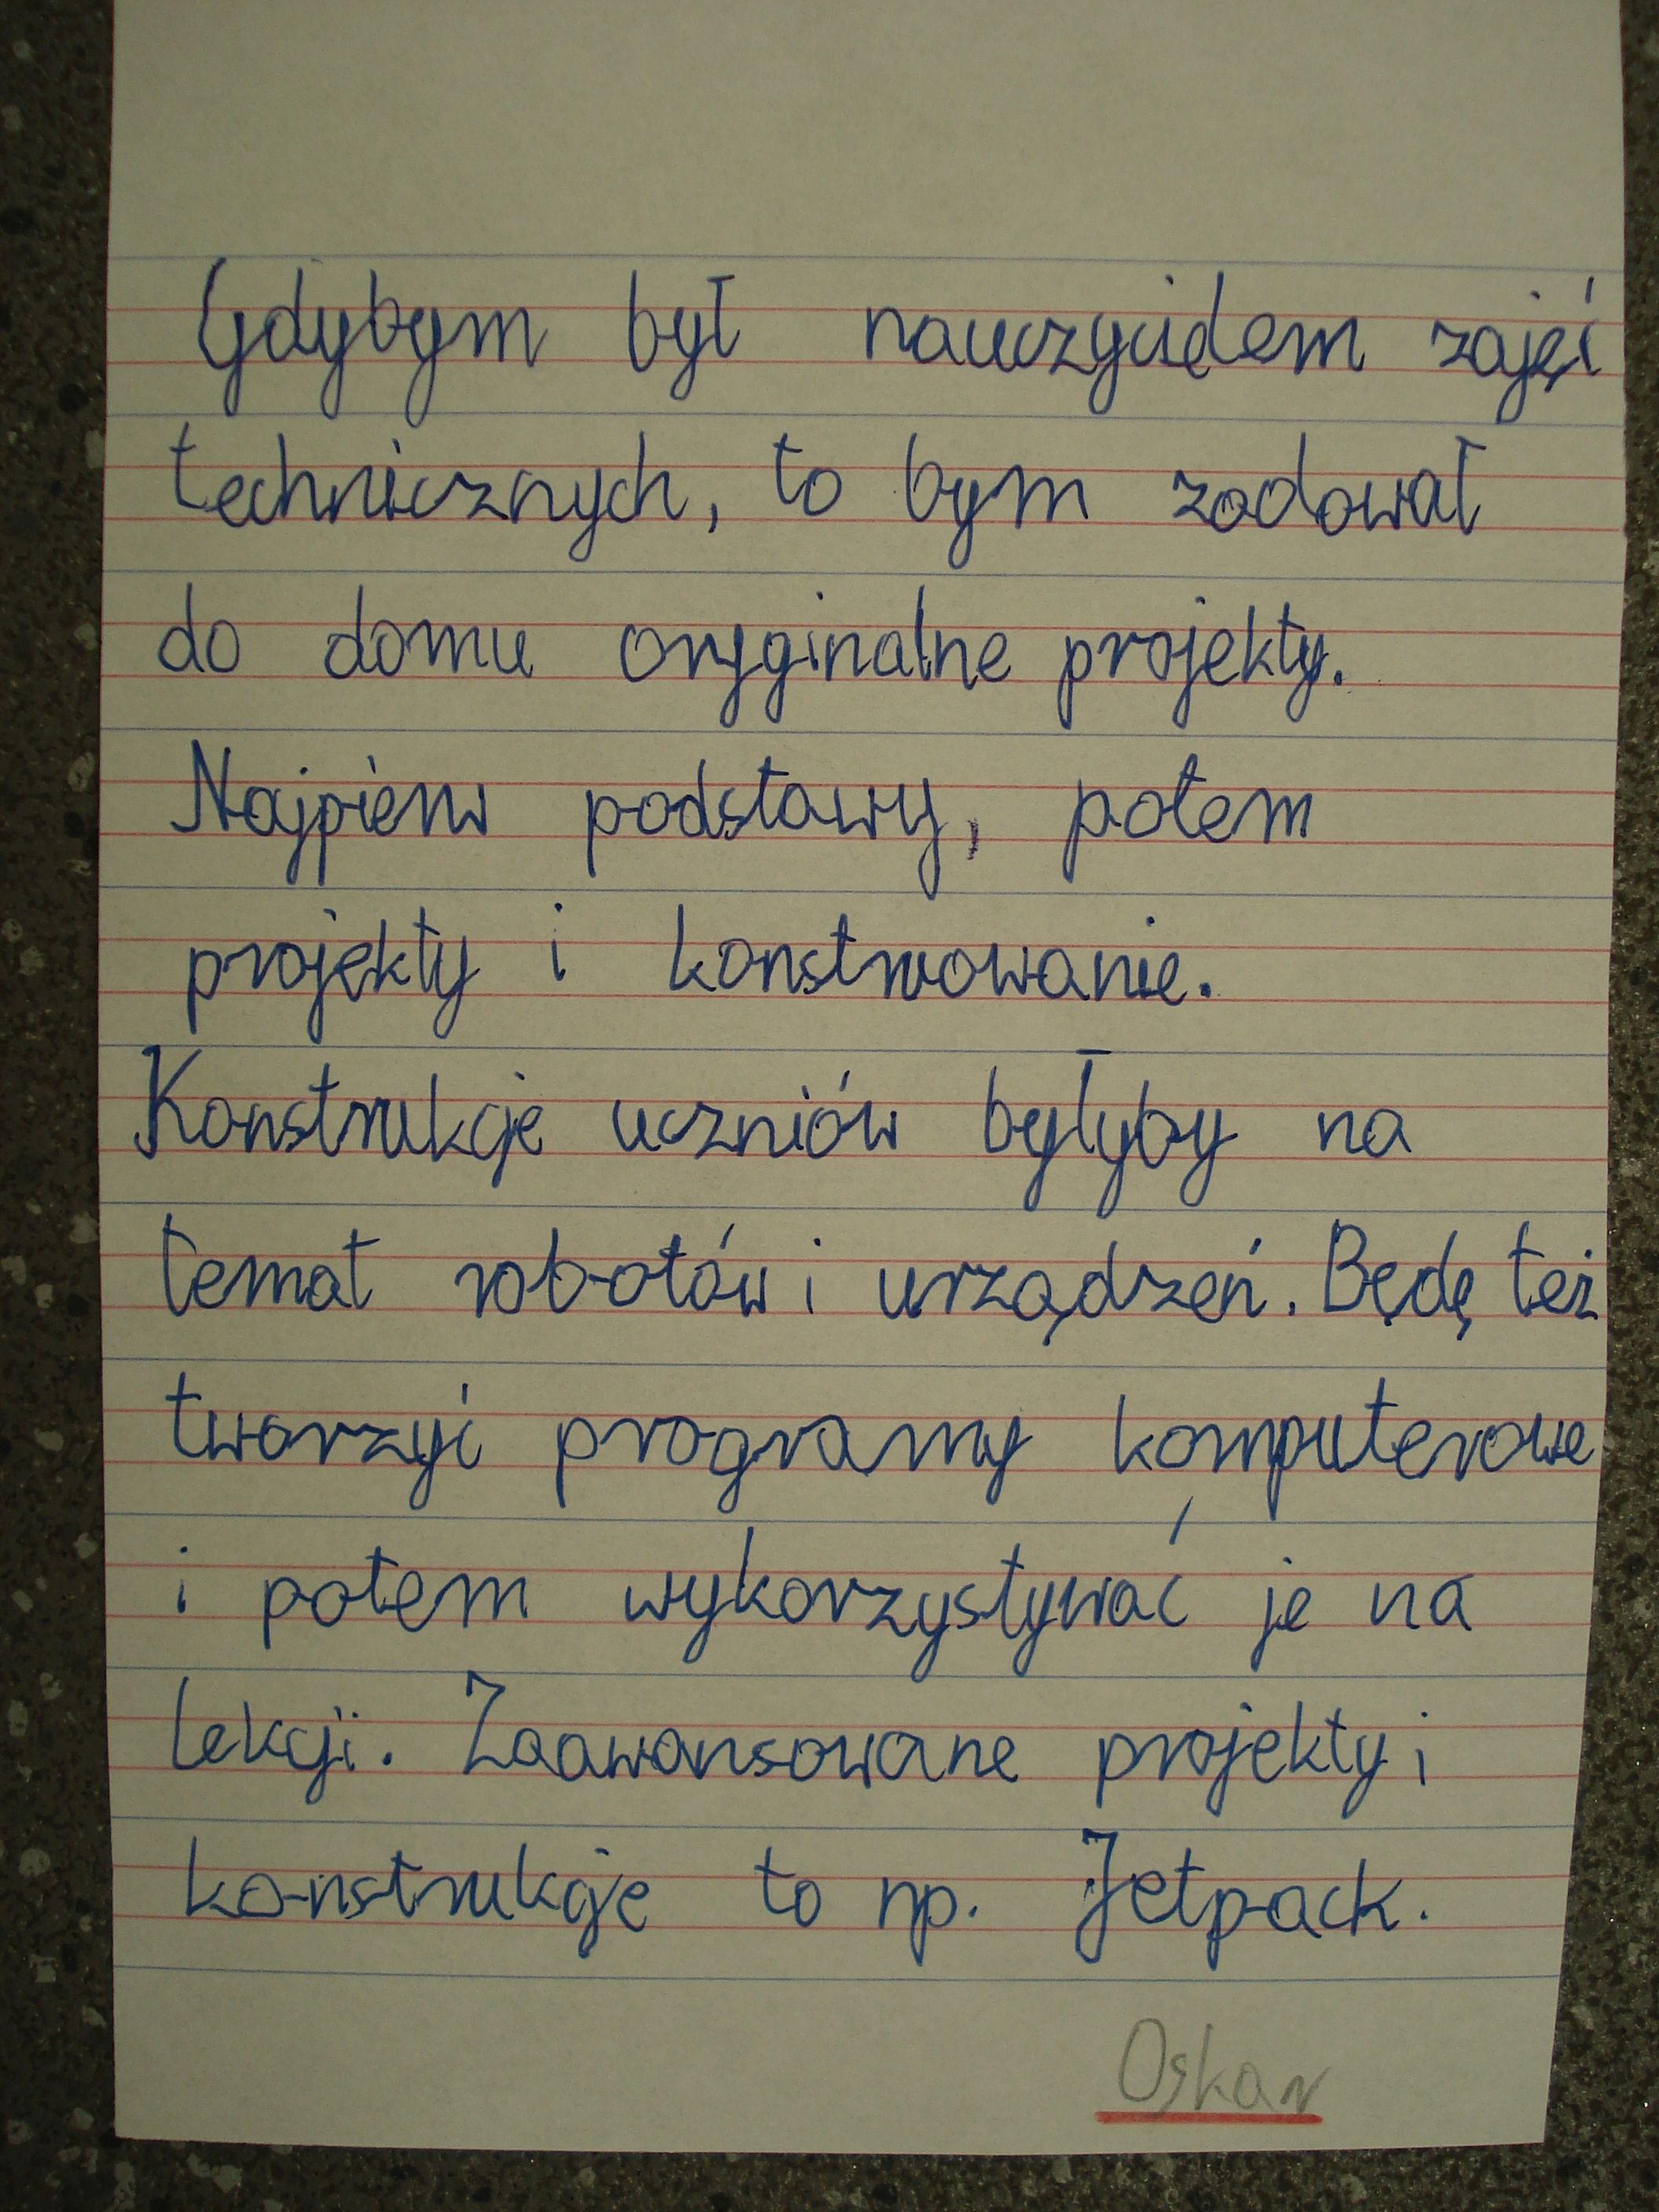 Gdybym był nauczycielem zajęć
technicznych, to bym zadawał
do domu oryginalne projekty.
Najpierw podstawy, potem
projekty i konstruowanie.
Konstrukcje uczniów byłyby na
temat robotów i urządzeń. Będę też
tworzyć programy komputerowe
i potem wykorzystywać je na
lekcji. Zaawansowane projekty i
konstrukcje to np. Jetpack.
Oskar